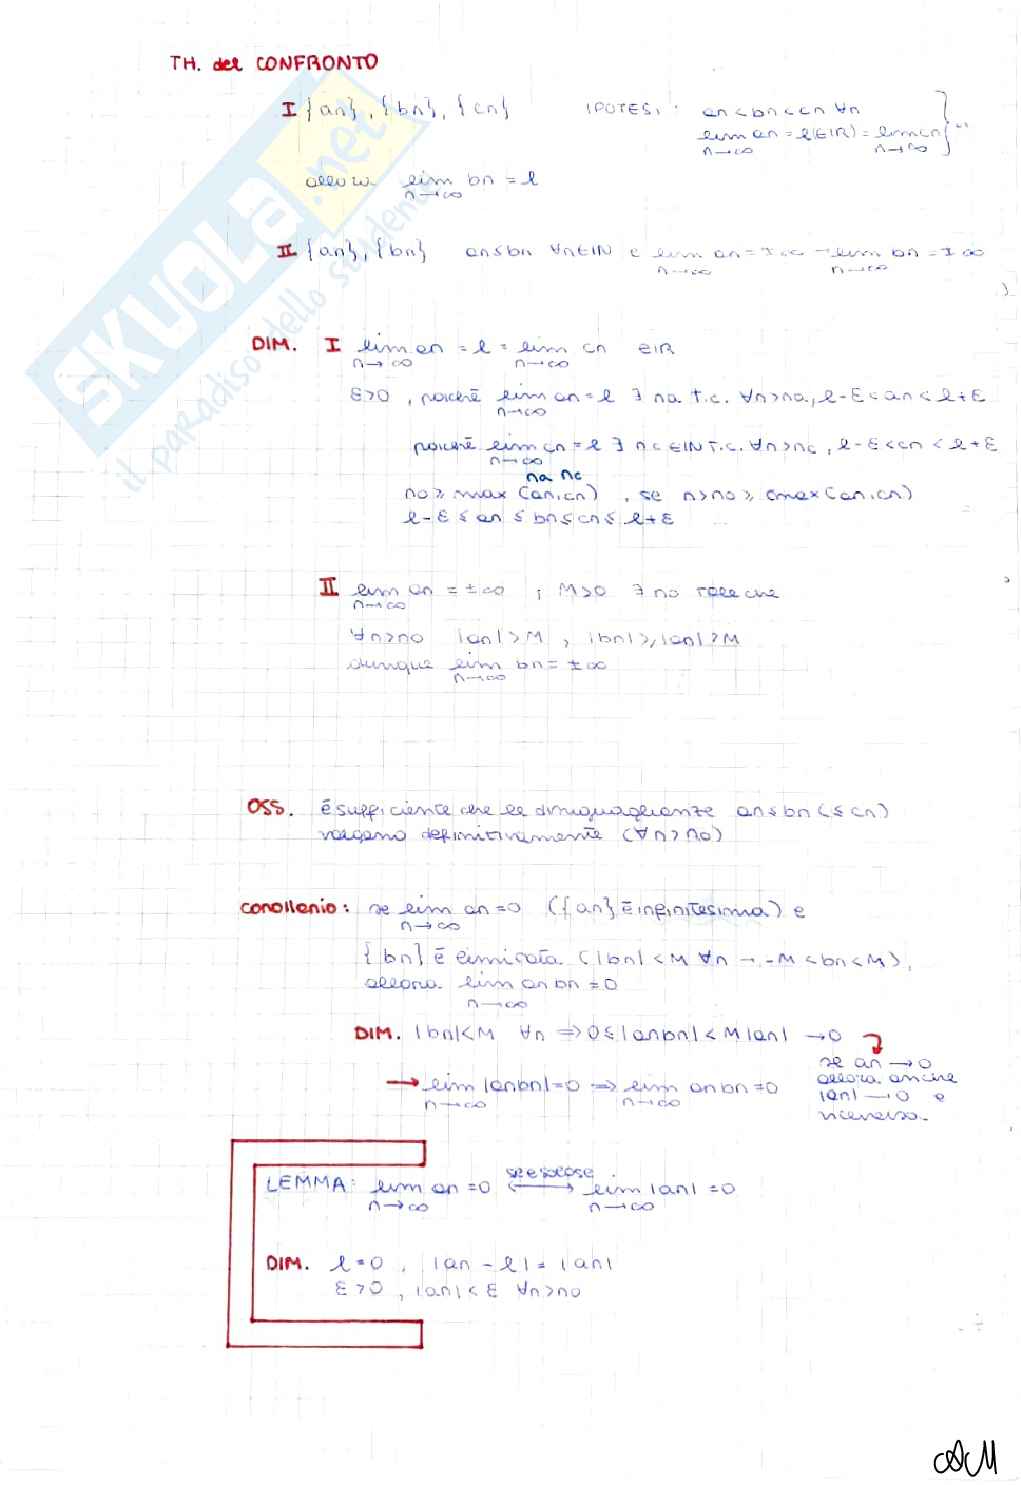 TH. del CONFRONTO
I {an}, {bn}, {cn} IPOTESI: an<bn<cn ∀n
lim an = l(∈IR) = lim cn
n→∞ n→∞
allora lim bn = l
n→∞
II {an}, {bn} an≤bn ∀n∈IN e lim an = ±∞ → lim bn = ±∞
n→∞ n→∞
DIM. I lim an = l = lim cn ∈IR
n→∞ n→∞
ε>0, poiché lim an = l ∃ na t.c. ∀n>na, l-ε<an<l+ε
n→∞
poiché lim cn = l ∃ nc ∈IN t.c. ∀n>nc, l-ε<cn<l+ε
n→∞
na nc
no ≥ max (an, cn), se n>no ≥ cmax (an, cn)
l-ε ≤ an ≤ bn ≤ cn ≤ l+ε
II lim an = ±∞ ; M>0 ∃ no tale che
n→∞
∀n>no |an|>M, |bn|≥|an|>M
dunque lim bn = ±∞
n→∞
OSS. é sufficiente che le disuguaglianze an≤bn(≤cn)
valgano definitivamente (∀n>no)
corollario: se lim an=0 ({an} é infinitesima) e
n→∞
{bn} é limitata (|bn|<M ∀n → -M<bn<M),
allora lim an bn = 0
n→∞
DIM. |bn|<M ∀n ⇒ 0≤|anbn|<M|an| →0
se an →0
allora anche
|an| →0 e
viceversa.
→ lim |anbn|=0 ⇒ lim an bn=0
n→∞ n→∞
se e solo se
LEMMA: lim an =0 ⟷ lim |an| =0
n→∞ n→∞
DIM. l=0, |an - l| = |an|
ε>0, |an|<ε ∀n>no
AM
SKUOLA.net
il paradiso dello studente